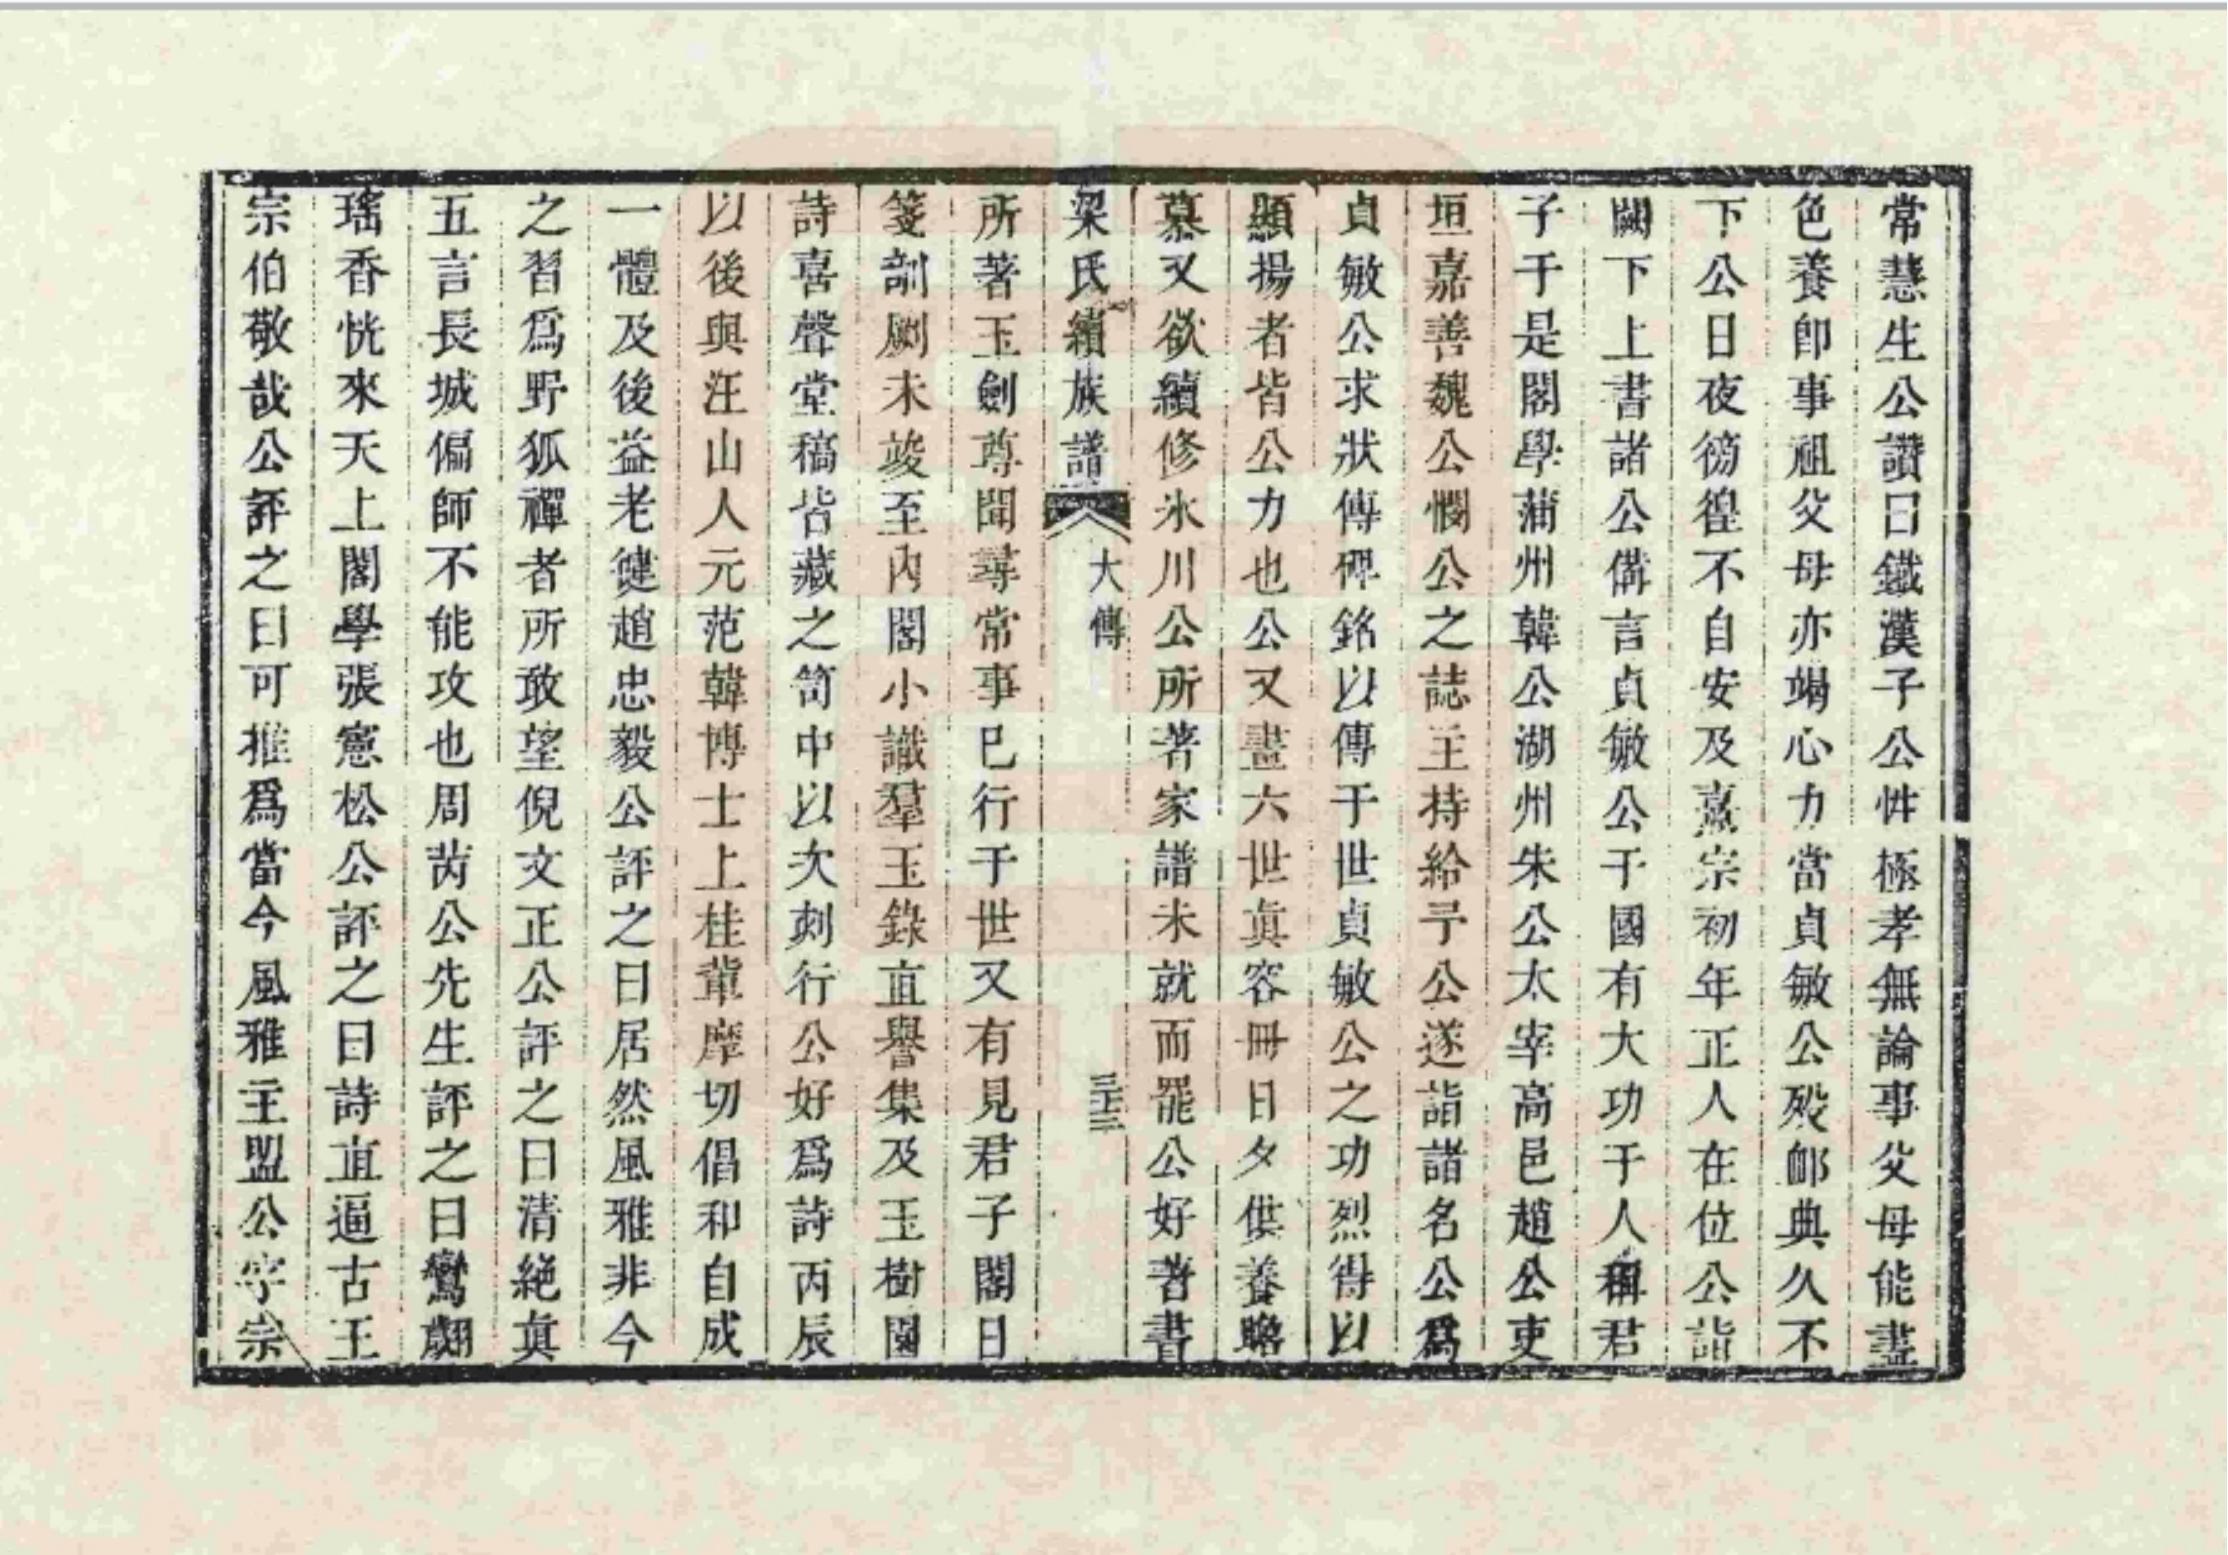 常慧生公讚曰鐵漢子公性極孝無論事父母能盡
色養卽事祖父母亦竭心力當貞敏公歿䘏典久不
下公日夜徬徨不自安及熹宗初年正人在位公詣
闕下上書諸公備言貞敏公于國有大功于人稱君
子于是閣學蒲州韓公湖州朱公太宰高邑趙公吏
垣嘉善魏公憫公之誌主持給予公遂詣諸名公爲
貞敏公求狀傳碑銘以傳于世貞敏公之功烈得以
顯揚者皆公力也公又畫六世眞容冊日夕供養瞻
慕又欲續修氷川公所著家譜未就而罷公好著書
梁氏續族譜 大傳 三十三
所著玉劍尊聞尋常事巳行于世又有見君子閣日
箋訓劂未竣至內閣小識羣玉錄直譽集及玉樹園
詩喜聲堂稿皆藏之笥中以次刻行公好爲詩丙辰
以後與汪山人元范韓博士上桂輩摩切倡和自成
一體及後益老健趙忠毅公評之曰居然風雅非今
之習爲野狐禪者所敢望倪文正公評之曰清絕眞
五言長城偏師不能攻也周芮公先生評之曰鸞翽
瑤香恍來天上閣學張窓松公評之曰詩直逼古王
宗伯敬哉公評之曰可推爲當今風雅主盟公字宗